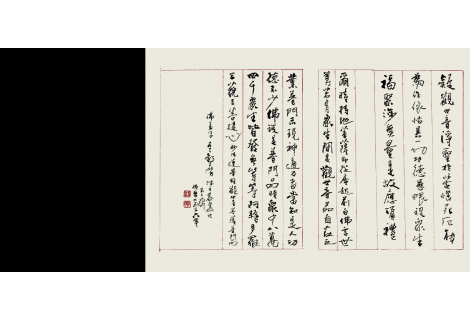 疑觀世音淨聖於苦惱死厄能
為作依怙具一切功德慈眼視眾生
福聚海無量是故應頂禮
爾時持地菩薩即從座起前白佛言世
尊若有眾生聞是觀世音品自在之
業普門示現神通力者當知是人功
德不少佛說是普門品時眾中八萬
四千眾生皆發無等等阿耨多羅
三藐三菩提心 妙法蓮華經觀世音菩薩普門品